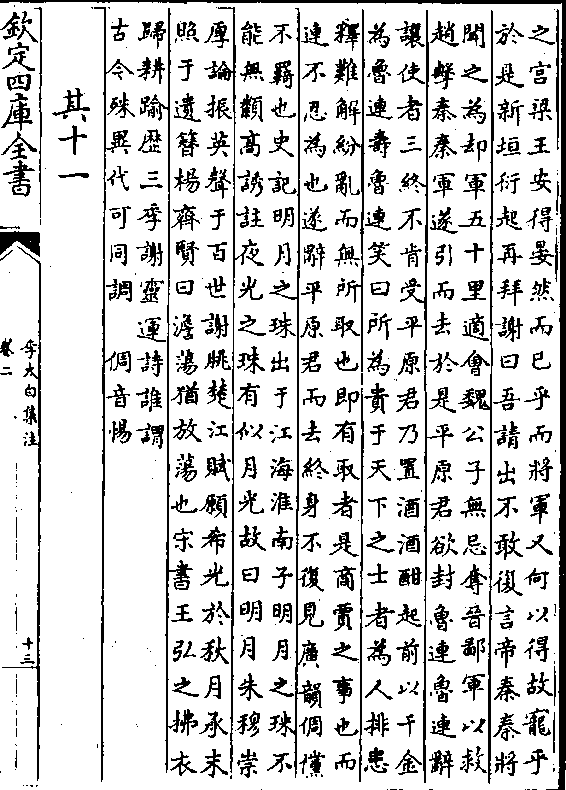 之宫梁王安得晏然而已乎而將軍又何以得故寵乎
於是新垣衍起再拜謝曰吾請出不敢復言帝秦秦將
聞之為却軍五十里適會魏公子無忌奪晉鄙軍以救
趙擊秦秦軍遂引而去於是平原君欲封魯連魯連辭
讓使者三終不肯受平原君乃置酒酒酣起前以千金
為魯連壽魯連笑曰所為貴于天下之士者為人排患
釋難解紛亂而無所取也即有取者是商賈之事也而
連不忍為也遂辭平原君而去終身不復見廣韻倜儻
不羈也史記明月之珠出于江海淮南子明月之珠不
能無纇髙誘註夜光之珠有似月光故曰明月朱穆崇
厚論振英聲于百世謝朓楚江賦願希光於秋月承末
照于遺簪楊齊賢曰澹蕩猶放蕩也宋書王弘之拂衣
歸耕踰歴三季謝靈運詩誰謂
古今殊異代可同調 倜音惕
其十一
欽定四庫全書
李太白集注
卷二
十三